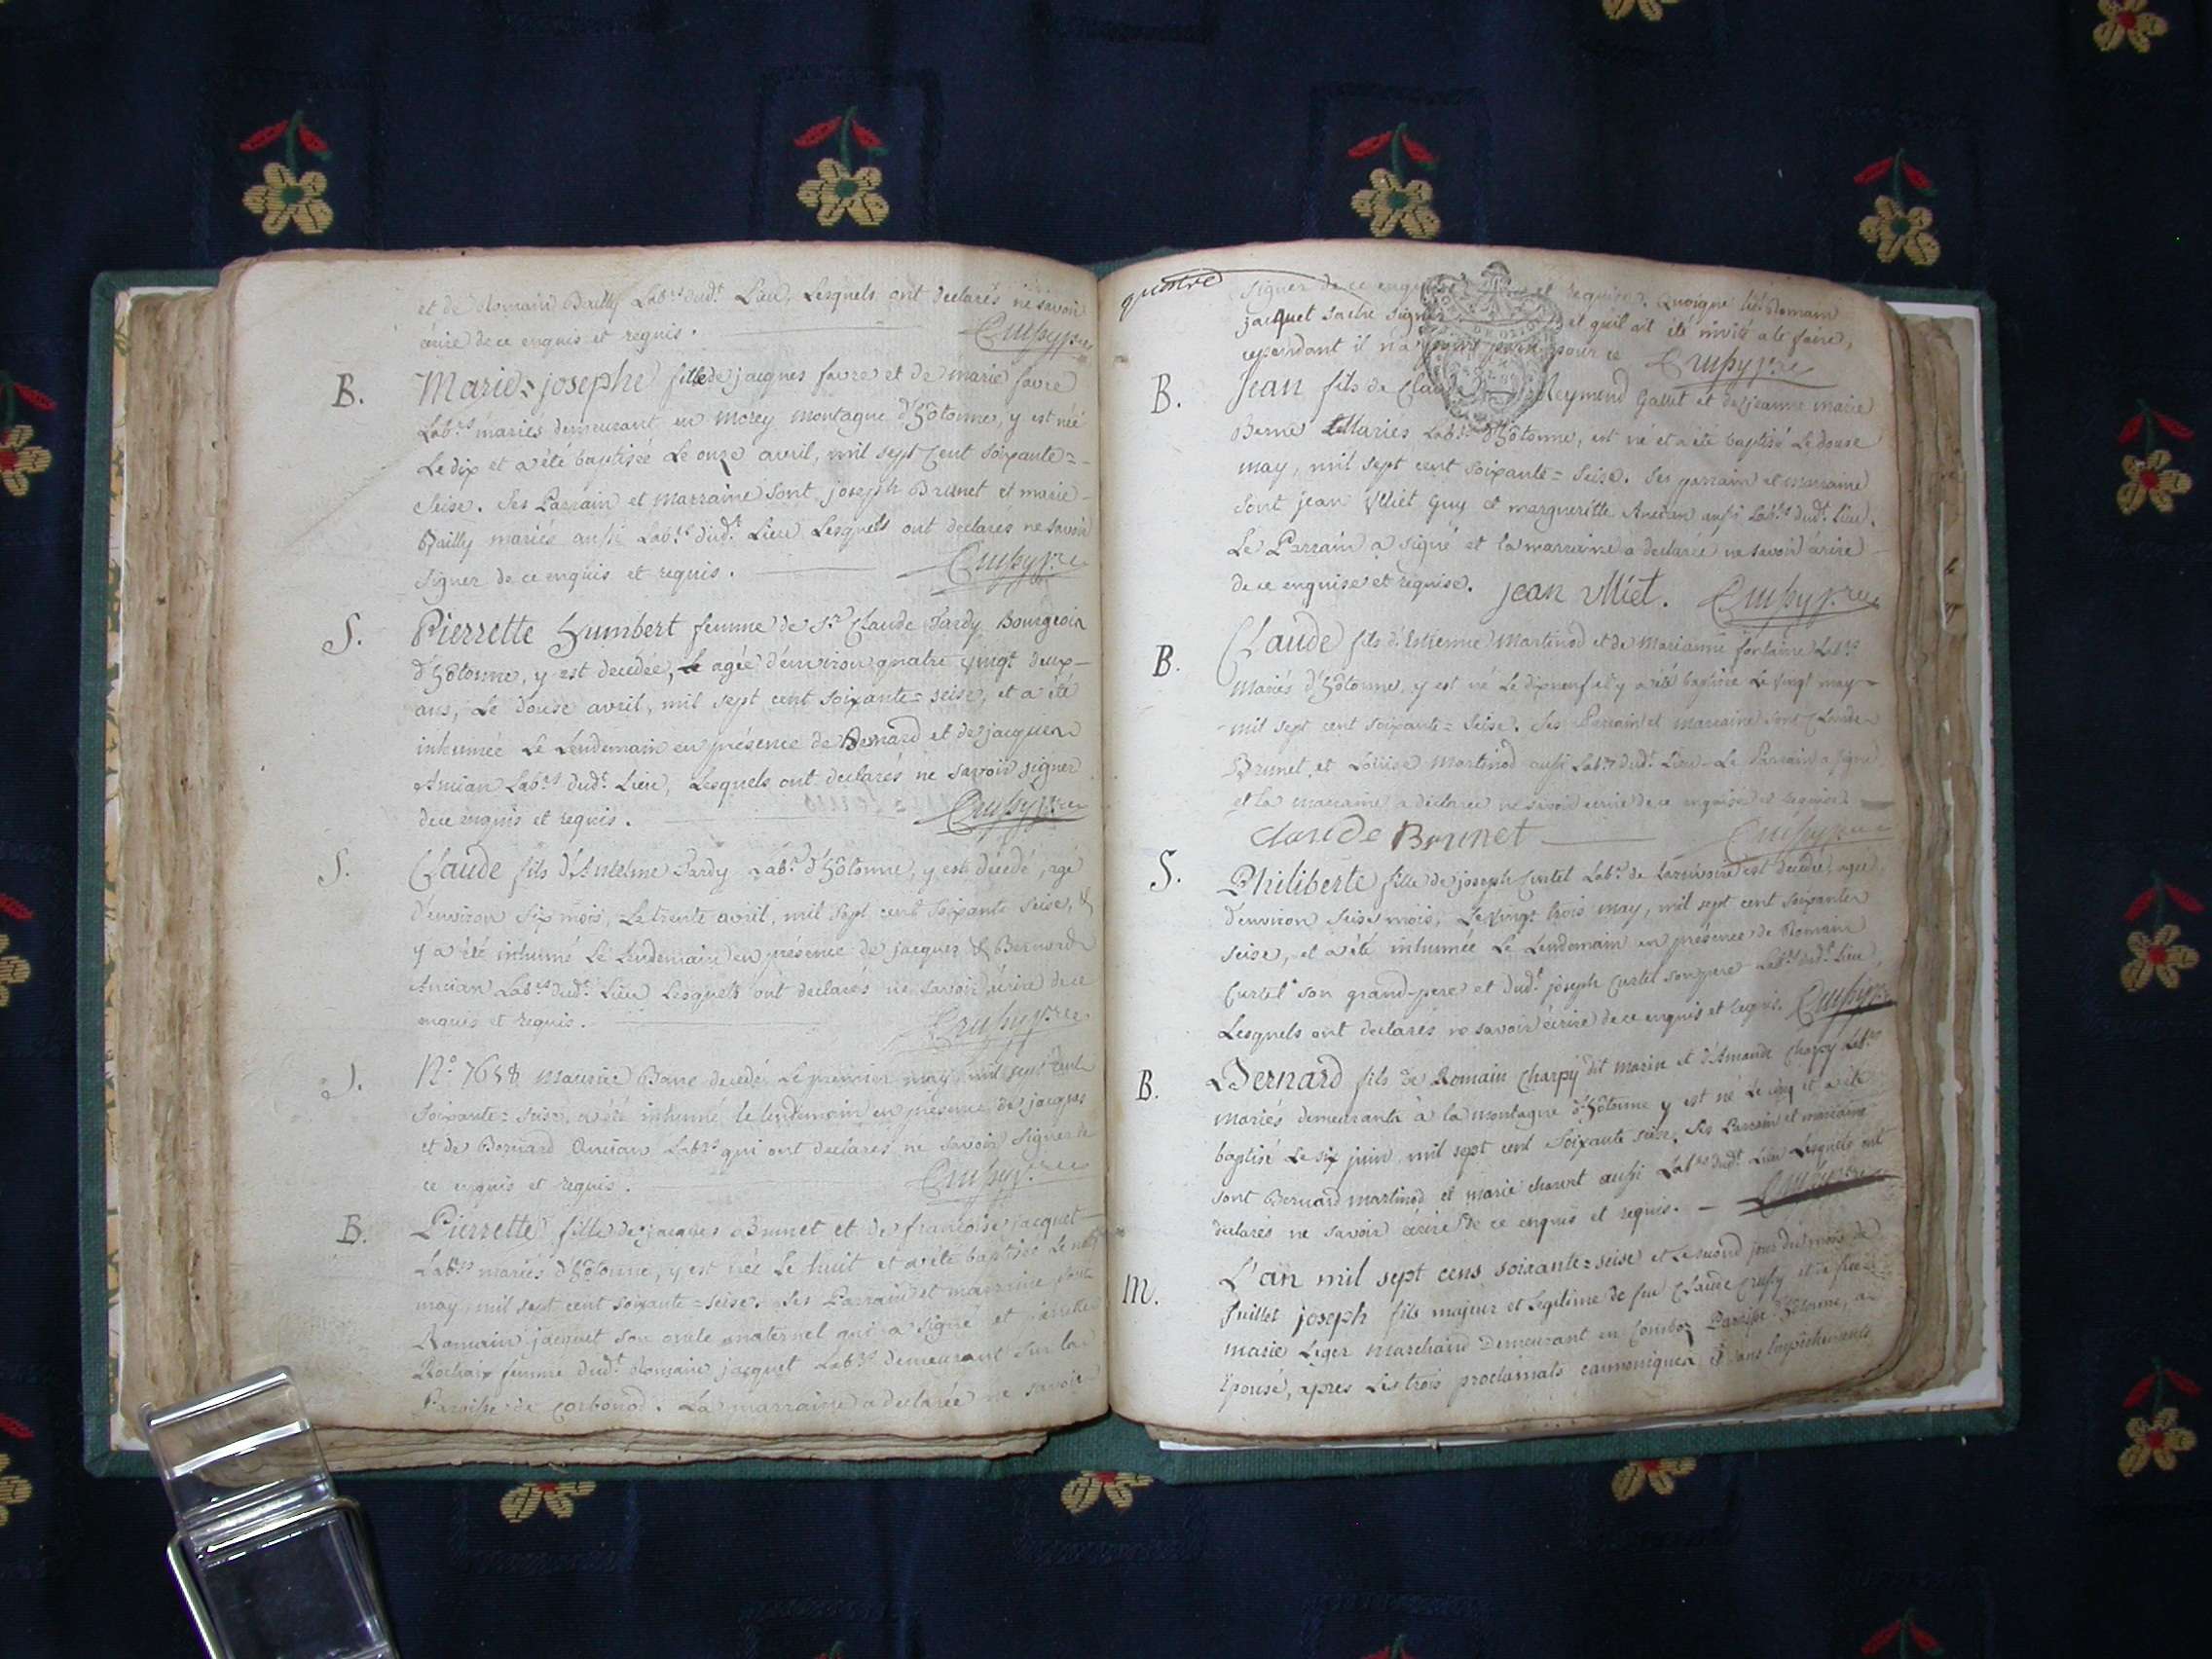 et de Romain Bailly Lab.rs dud.t Lieu, Lesquels ont declarés ne savoir
écrire de ce enquis et requis. Crussy p.re
B. Marie=josephe fille de jacques favre et de marie favre
Lab.rs mariés demeurant en morey montagne d'hôtonne, y est née
Le dix et a été baptisée Le onze avril, mil sept Cent soixante=
seise. Ses Parrain et marraine sont joseph Brunet et marie
Bailly mariés aussi Lab.rs dud.t Lieu Lesquels ont declarés ne savoir
signer de ce enquis et requis. Crussy p.re
S. Pierrette humbert femme de S.r Claude Tardy Bourgeois
d'hôtonne, y est decédée, agée d'environ quatre vingt deux
ans, Le douse avril, mil sept cent soixante=seise, et a été
inhumée Le Lendemain en présence de Bernard et de jacques
Ancian Lab.rs dud.t Lieu, Lesquels ont declarés ne savoir signer
de ce enquis et requis. Crussy p.re
S. Claude fils d'Antelme Tardy Lab.r d'hôtonne, y est décédé, agé
d'environ six mois, Le trente avril, mil sept cent soixante seise, &
y a été inhumé Le Lendemain en présence de jacques & Bernard
Ancian Lab.rs dud.t Lieu Lesquels ont declarés ne savoir écrire de ce
enquis et requis. Crussy p.re
S. N.o 7658 Maurice decedé Le premier may mil sept cent
soixante=seise, a été inhumé le lendemain en présence de jacques
et de Bernard Ancian Lab.rs qui ont declarés ne savoir signer de
ce enquis et requis. Crussy p.re
B. Pierrette fille de jacques Brunet et de françoise jacquet
Lab.rs mariés d'hôtonne, y est née Le huit et a été baptisée Le neuf
may, mil sept cent soixante=seise. Ses Parrain et marraine sont
Romain jacquet son oncle maternel qui a signé et
Rochaix femme dud.t Romain jacquet Lab.rs demeurant sur la
Paroisse de Corbonod. La marraine a declarée ne savoir
quatre
signer de ce enquise et requise. Quoique led.t Romain
jacquet sache signer et qu'il ait été invité a le faire,
cependant il n'a pour ce Crussy p.re
B. Jean fils de Claude Reymond Gallet et de jeanne marie
Berne Mariés Lab.rs d'hôtonne, est né et a été baptisé Le douse
may, mil sept cent soixante=seise. Ses parrain et marraine
sont jean Miet Guy et margueritte Ancian aussi Lab.rs dud.t Lieu.
Le Parrain a signé et la marraine a declarée ne savoir écrire
de ce enquise et requise. jean Miet. Crussy p.re
B. Claude fils d'Estienne Martinod et de Marianne fontaine Lab.rs
Mariés d'hôtonne, y est né Le dixneuf et y a été baptisé Le vingt may
mil sept cent soixante=seise. Ses Parrain et marraine sont Claude
Brunet et Louise Martinod aussi Lab.rs dud.t Lieu. Le Parrain a signé
et la marraine a déclarée ne savoir écrire de ce enquise et requise.
claude Brunet Crussy p.re
S. Philiberte fille de joseph Curtet Lab.r de est decedée, agée
d'environ seise mois, Le vingt trois may, mil sept cent soixante
seise, et a été inhumée Le Lendemain en présence de Romain
Curtet son grand-pere et dud.t joseph Curtet son pere Lab.rs dud.t Lieu,
Lesquels ont declarés ne savoir écrire de ce enquis et requis. Crussy p.re
B. Bernard fils de Romain Charpy dit marin et d'Amande Charpy Lab.rs
Mariés demeurants à la montagne d'hôtonne y est né Le cinq et a été
baptisé Le six juin mil sept cent soixante seise. Ses Parrain et marraine
sont Bernard martinod et marie charvet aussi Lab.rs dud.t Lieu Lesquels ont
declarés ne savoir écrire de ce enquis et requis. Crussy p.re
M. L'an mil sept cens soixante=seise et Le second jour du mois de
Juillet joseph fils majeur et Legitime de feu Claude Crussy et de feüe
marie Leger marchand Demeurant en Combaz Paroisse d'hôtonne, a
Epousé, apres Les trois proclamats cannoniques Sans Empêchements